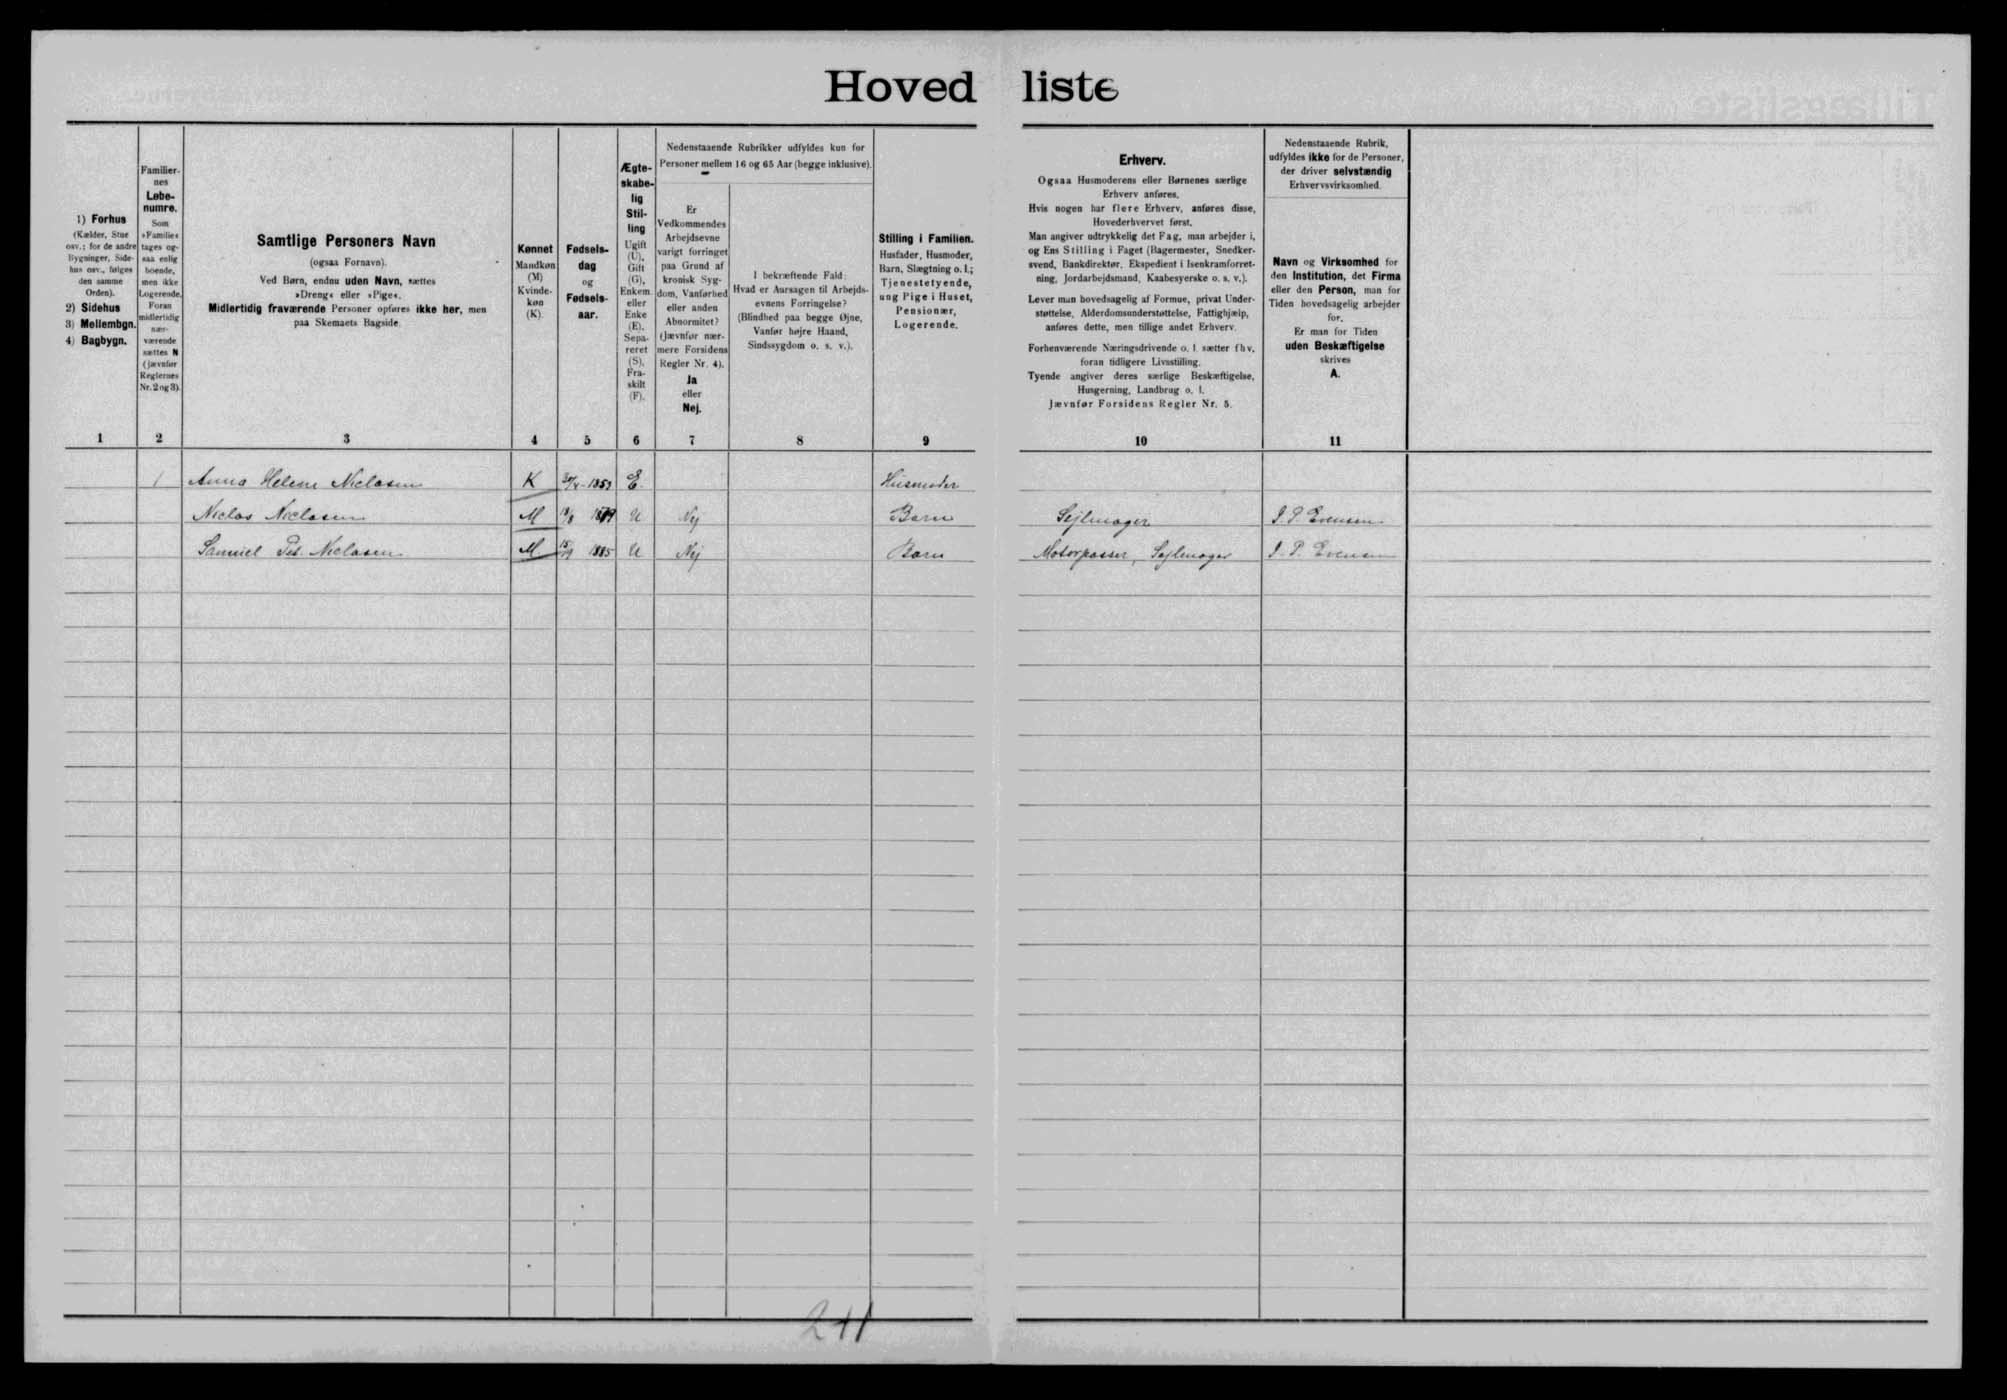 Hovedliste
1) Forhus
(Kælder, Stue
osv.; for de andre
Bygninger, Side-
hus osv., følges
den samme
Orden).
2) Sidehus
3) Mellembgn.
4) Bagbygn.
1
Familier-
nes
Løbe-
numre.
Som
»Familie«
tages og-
saa enlig
boende,
men ikke
Logerende.
Foran
midlertidig
nær-
værende
sættes N
(jævnfør
Reglernes
Nr. 2 og 3).
2
Samtlige Personers Navn
(ogsaa Fornavn).
Ved Børn, endnu uden Navn, sættes
»Dreng« eller »Pige«.
Midlertidig fraværende Personer opføres ikke her, men
paa Skemaets Bagside.
3
Kønnet
Mandkøn
(M)
Kvinde-
køn
(K).
4
Fødsels-
dag
og
Fødsels-
aar.
5
Ægte-
skabe-
lig
Stil-
ling
Ugift
(U),
Gift
(G),
Enkem.
eller
Enke
(E),
Sepa-
reret
(S),
Fra-
skilt
(F).
6
Nedenstaaende Rubrikker udfyldes kun for
Personer mellem 16 og 65 Aar (begge inklusive).
Er
Vedkommendes
Arbejdsevne
varigt forringet
paa Grund af
kronisk Syg-
dom, Vanførhed
eller anden
Abnormitet?
(Jævnfør nær-
mere Forsidens
Regler Nr. 4).
Ja
eller
Nej.
7
I bekræftende Fald:
Hvad er Aarsagen til Arbejds-
evnens Forringelse?
(Blindhed paa begge Øjne,
Vanfør højre Haand,
Sindssygdom o. s. v.).
8
Stilling i Familien.
Husfader, Husmoder,
Barn, Slægtning o. l.;
Tjenestetyende,
ung Pige i Huset,
Pensionær,
Logerende.
9
Erhverv.
Ogsaa Husmoderens eller Børnenes særlige
Erhverv anføres.
Hvis nogen har flere Erhverv, anføres disse,
Hovederhvervet først.
Man angiver udtrykkelig det Fag, man arbejder i,
og Ens Stilling i Faget (Bagermester, Snedker-
svend, Bankdirektør, Ekspedient i Isenkramforret-
ning, Jordarbejdsmand, Kaabesyerske o. s. v.).
Lever man hovedsagelig af Formue, privat Under-
støttelse, Alderdomsunderstøttelse, Fattighjælp,
anføres dette, men tillige andet Erhverv.
Forhenværende Næringsdrivende o. l. sætter fhv.
foran tidligere Livsstilling.
Tyende angiver deres særlige Beskæftigelse,
Husgerning, Landbrug o. l.
Jævnfør Forsidens Regler Nr. 5.
10
Nedenstaaende Rubrik,
udfyldes ikke for de Personer,
der driver selvstændig
Erhvervsvirksomhed.
Navn og Virksomhed for
den Institution, det Firma
eller den Person, man for
Tiden hovedsagelig arbejder
for.
Er man for Tiden
uden Beskæftigelse
skrives
A.
11
1 Anna Helene Niclasen K 1853 E. Husmoder
Niclas Niclasen M 18/8 1879 U Nej Barn Sejlmager J. P. Evensen
Samuel Pet. Niclasen M 1885 U Nej Barn Motorpasser, Sejlmager J. P. Evensen
241